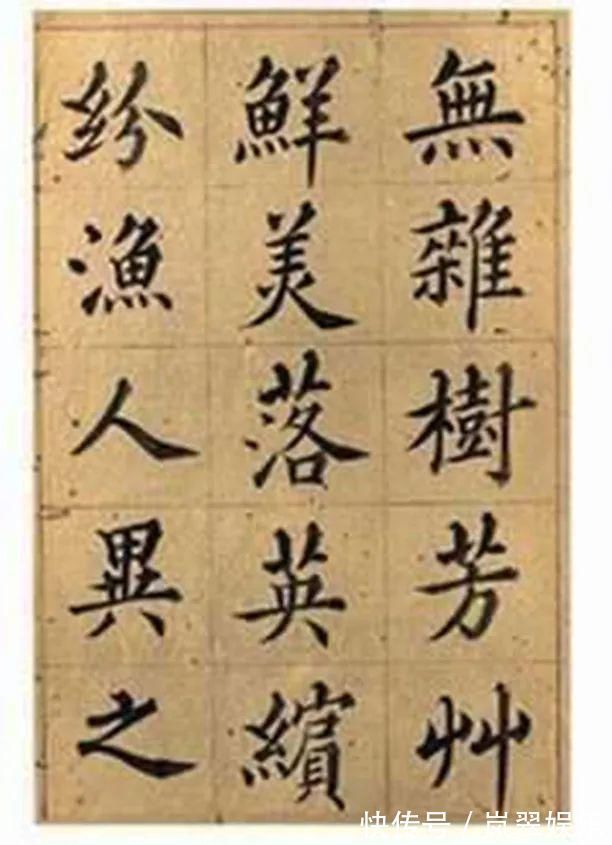 無雜樹芳艸
鮮美落英繽
紛漁人異之
快传号/岚翠娱